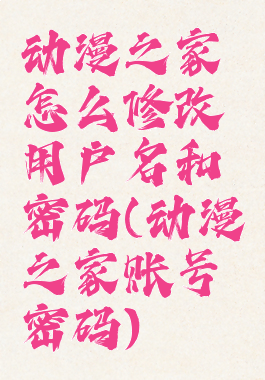 动漫之家
怎么修改
用户名和
密码(动漫
之家账号
密码)